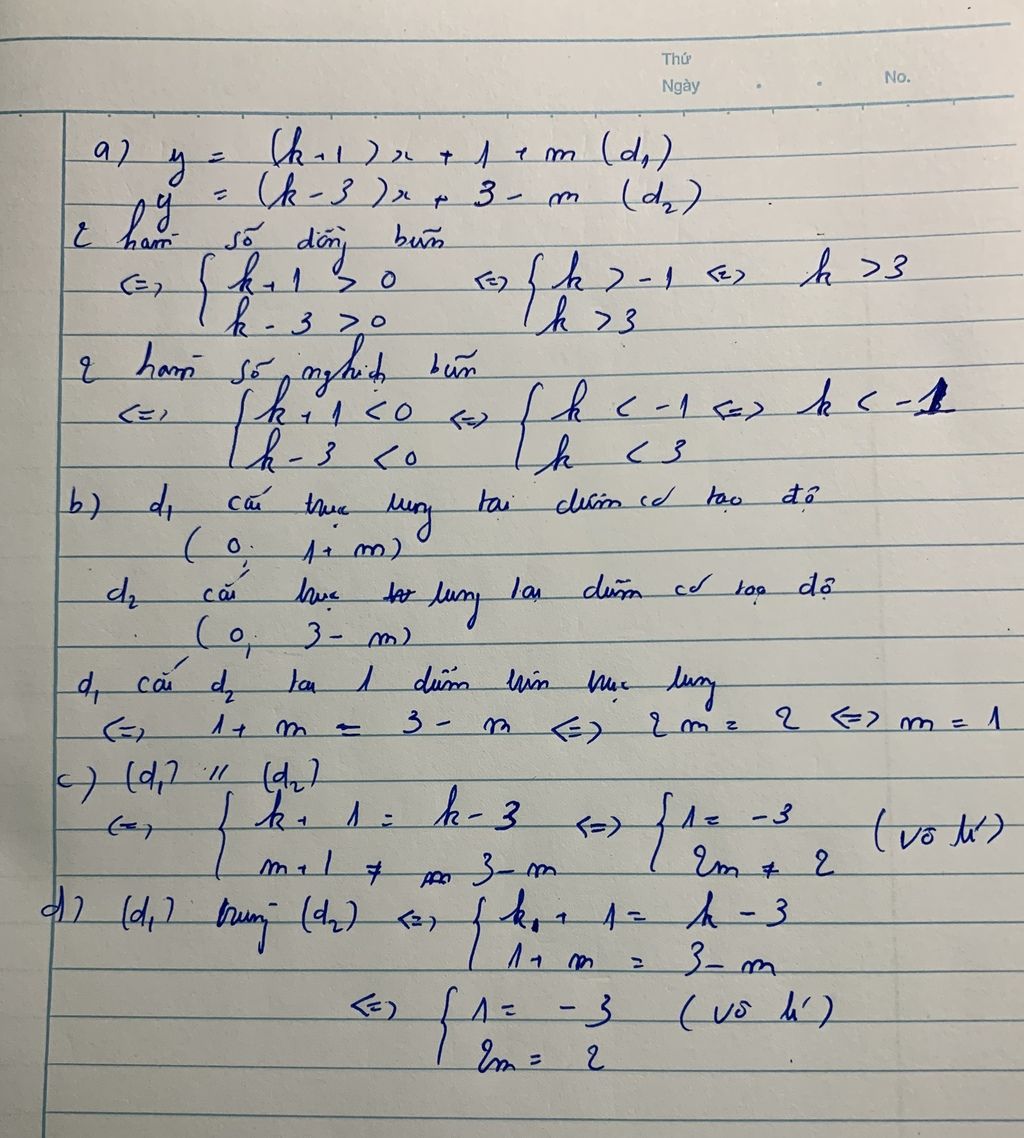 Thứ
Ngày . . No.
a) y = (k+1)x + 1 + m (d₁)
y = (k-3)x + 3 - m (d₂)
2 hàm số đồng biến
<=> { k+1 > 0 <=> { k > -1 <=> k > 3
k - 3 > 0 k > 3
2 hàm số nghịch biến
<=> { k+1 < 0 <=> { k < -1 <=> k < -1
k - 3 < 0 k < 3
b) d₁ cắt trục tung tại điểm có tạo độ
(0; 1+ m)
d₂ cắt trục tung tại điểm có toạ độ
(0; 3 - m)
d₁ cắt d₂ tại 1 điểm trên trục tung
<=> 1+ m = 3 - m <=> 2m = 2 <=> m = 1
c) (d₁) // (d₂)
<=> { k+ 1 = k-3 <=> { 1 = -3 (vô lí)
m+1 ≠ 3-m 2m ≠ 2
d) (d₁) trùng (d₂) <=> { k + 1 = k - 3
1+ m = 3-m
<=> { 1 = - 3 (vô lí)
2m = 2